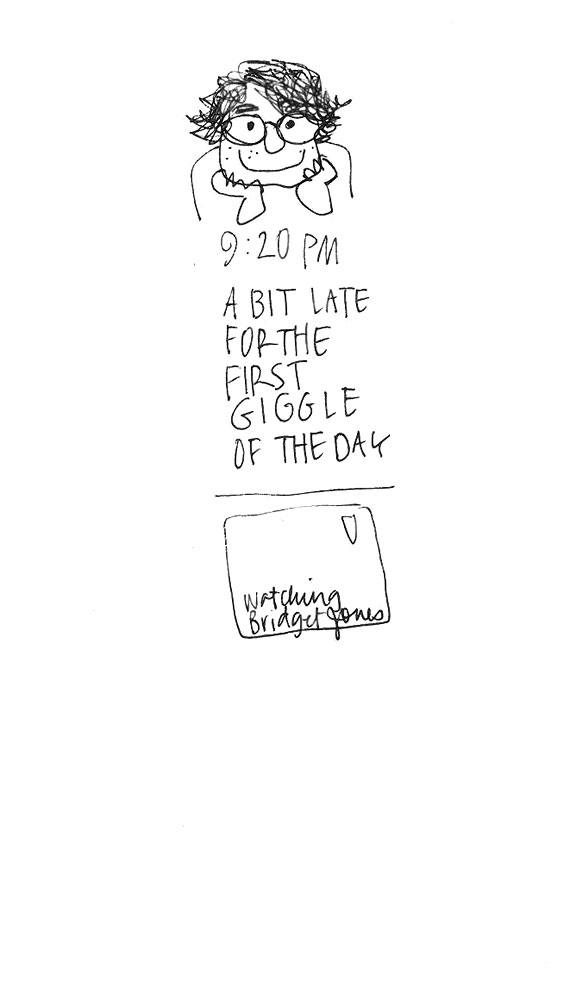 9:20 PM
A BIT LATE
FOR THE
FIRST
GIGGLE
OF THE DAY
watching
Bridget Jones